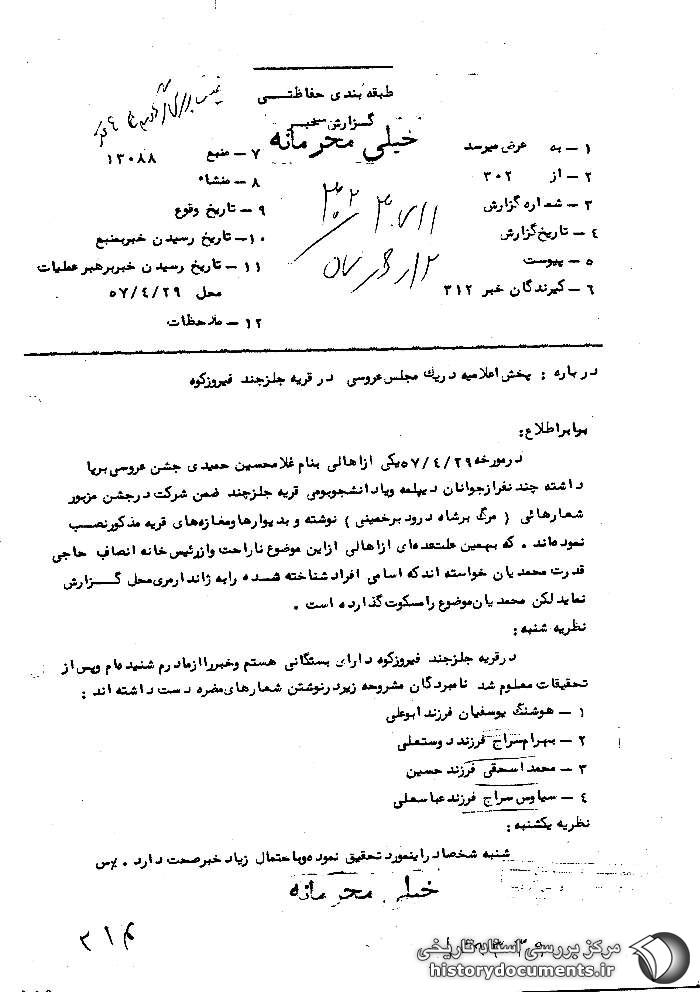 طبقه بندی حفاظتی
گزارش خبر
خیلی محرمانه
۱ – به عرض میرسد
۲ – از ۳۰۲
۳ – شماره گزارش
۴ – تاریخ گزارش
۵ – پیوست
۶ – گیرندگان خبر ۳۱۲
۷ – منبع ۱۳۰۸۸
۸ – منشاء
۹ – تاریخ وقوع
۱۰ – تاریخ رسیدن خبر بمنبع
۱۱ – تاریخ رسیدن خبر برهبر عملیات
محل ۵۷/۴/۲۹
۱۲ – ملاحظات
درباره : پخش اعلامیه در یک مجلس عروسی در قریه جلزجند فیروزکوه
برابر اطلاع :
در مورخه ۵۷/۴/۲۹ یکی از اهالی بنام غلامحسین حمیدی جشن عروسی برپا
داشته چند نفر از جوانان دیپلمه ویا دانشجو بومی قریه جلزجند ضمن شرکت در جشن مزبور
شعارهائی ( مرگ بر شاه درود بر خمینی ) نوشته و بدیوارها و مغازه‌های قریه مذکور نصب
نموده‌اند . که بهمین علت عده‌ای از اهالی از این موضوع ناراحت و از رئیس خانه انصاف حاجی
قدرت محمدیان خواسته اند که اسامی افراد شناخته شده را به ژاندارمری محل گزارش
نماید لکن محمدیان موضوع را مسکوت گذارده است .
نظریه شنبه :
در قریه جلزجند فیروزکوه دارای بستگانی هستم و خبر را از مادرم شنیده‌ام و پس از
تحقیقات معلوم شد نامبردگان مشروحه زیر در نوشتن شعارهای مضره دست داشته اند :
۱ – هوشنگ یوسفیان فرزند ابوعلی
۲ – بهرام سراج فرزند دوستعلی
۳ – محمد اسحقی فرزند حسین
۴ – سیاوس سراج فرزند عباسعلی
نظریه یکشنبه :
شنبه شخصا در اینمورد تحقیق نموده و باحتمال زیاد خبر صحت دارد .
خیلی محرمانه
مرکز بررسی اسناد تاریخی
historydocuments.ir